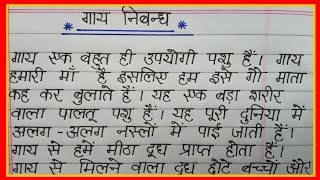 गाय निबन्ध
गाय एक बहुत ही उपयोगी पशु है। गाय
हमारी माँ है इसलिए हम इसे गौ माता
कह कर बुलाते हैं। यह एक बड़ा शरीर
वाला पालतू पशु है। यह पूरी दुनिया में
अलग-अलग नस्लों में पाई जाती है।
गाय से हमें मीठा दूध प्राप्त होता है।
गाय से मिलने वाला दूध छोटे बच्चों और